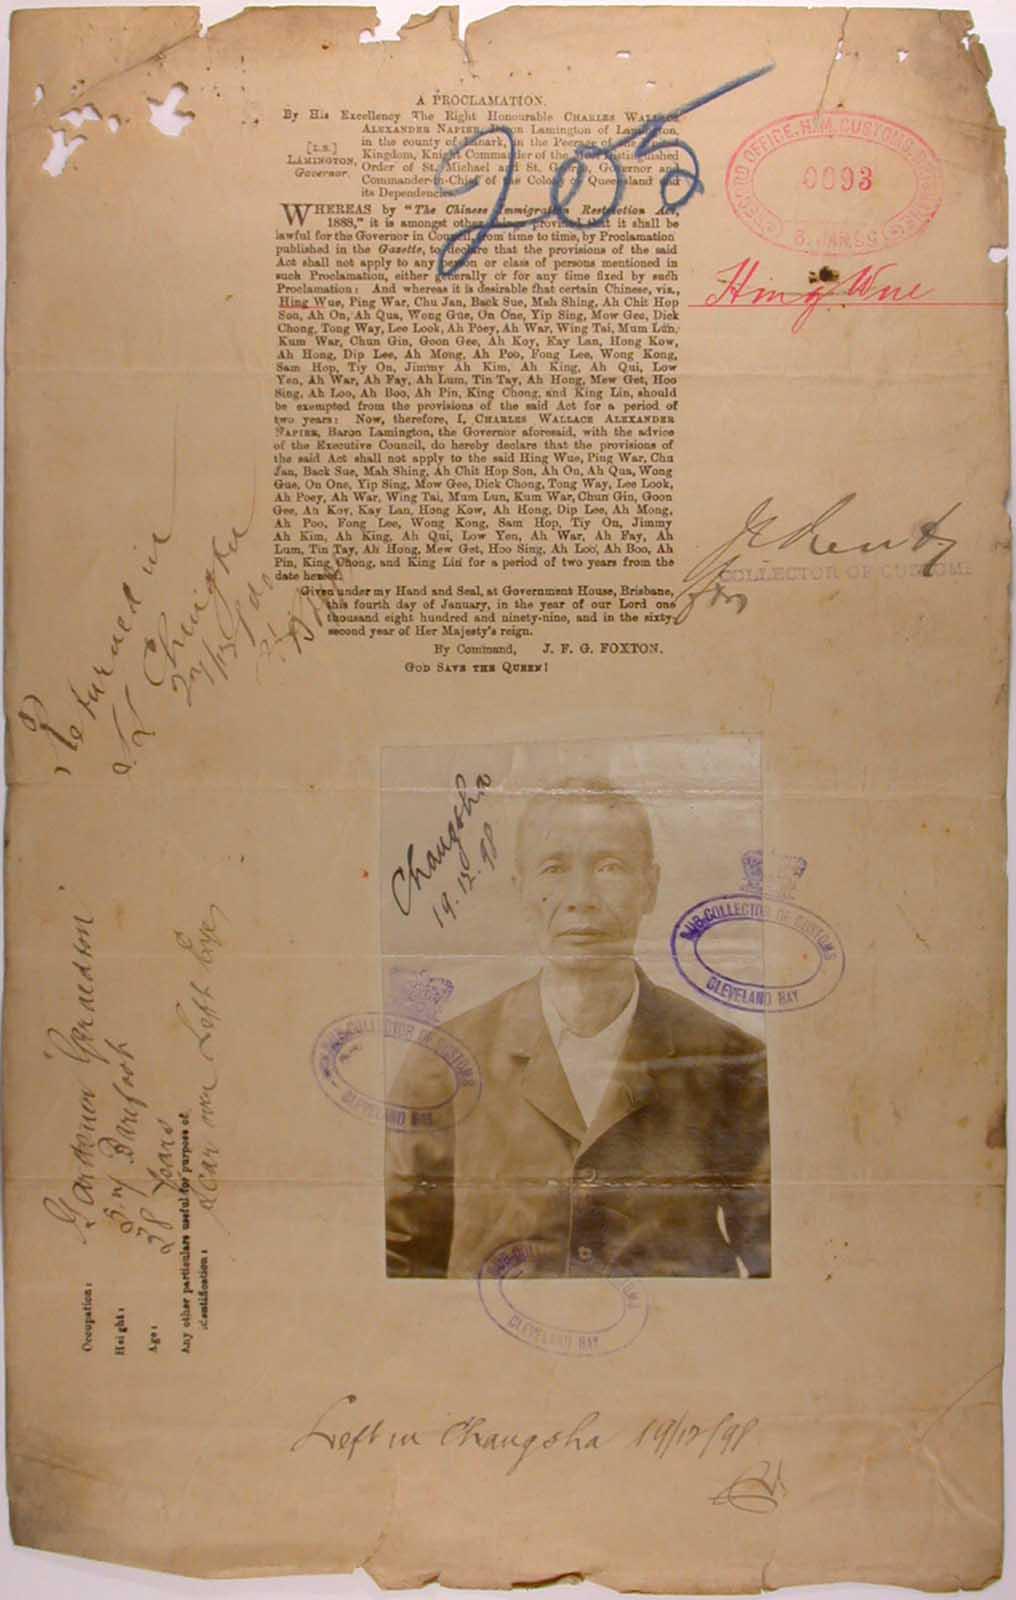 A PROCLAMATION.
By His Excellency The Right Honourable CHARLES WALLACE
ALEXANDER NAPIER, Baron Lamington of Lamington,
in the county of Lanark, in the Peerage of the United
Kingdom, Knight Commander of the Most Distinguished
Order of St. Michael and St. George, Governor and
Commander-in-Chief of the Colony of Queensland and
its Dependencies.
[L.S.]
LAMINGTON,
Governor.
WHEREAS by "The Chinese Immigration Restriction Act,
1888," it is amongst other things provided that it shall be
lawful for the Governor in Council, from time to time, by Proclamation
published in the Gazette, to declare that the provisions of the said
Act shall not apply to any person or class of persons mentioned in
such Proclamation, either generally or for any time fixed by such
Proclamation: And whereas it is desirable that certain Chinese, viz.,
Hing Wue, Ping War, Chu Jan, Back Sue, Mah Shing, Ah Chit Hop
Son, Ah On, Ah Qua, Wong Gue, On One, Yip Sing, Mow Gee, Dick
Chong, Tong Way, Lee Look, Ah Poey, Ah War, Wing Tai, Mum Lun,
Kum War, Chun Gin, Goon Gee, Ah Koy, Kay Lan, Hong Kow,
Ah Hong, Dip Lee, Ah Mong, Ah Poo, Fong Lee, Wong Kong,
Sam Hop, Tiy On, Jimmy Ah Kim, Ah King, Ah Qui, Low
Yen, Ah War, Ah Fay, Ah Lum, Tin Tay, Ah Hong, Mew Get, Hoo
Sing, Ah Loo, Ah Boo, Ah Pin, King Chong, and King Lin, should
be exempted from the provisions of the said Act for a period of
two years: Now, therefore, I, CHARLES WALLACE ALEXANDER
NAPIER, Baron Lamington, the Governor aforesaid, with the advice
of the Executive Council, do hereby declare that the provisions of
the said Act shall not apply to the said Hing Wue, Ping War, Chu
Jan, Back Sue, Mah Shing, Ah Chit Hop Son, Ah On, Ah Qua, Wong
Gue, On One, Yip Sing, Mow Gee, Dick Chong, Tong Way, Lee Look,
Ah Poey, Ah War, Wing Tai, Mum Lun, Kum War, Chun Gin, Goon
Gee, Ah Koy, Kay Lan, Hong Kow, Ah Hong, Dip Lee, Ah Mong,
Ah Poo, Fong Lee, Wong Kong, Sam Hop, Tiy On, Jimmy
Ah Kim, Ah King, Ah Qui, Low Yen, Ah War, Ah Fay, Ah
Lum, Tin Tay, Ah Hong, Mew Get, Hoo Sing, Ah Loo, Ah Boo, Ah
Pin, King Chong, and King Lin for a period of two years from the
date hereof.
Given under my Hand and Seal, at Government House, Brisbane,
this fourth day of January, in the year of our Lord one
thousand eight hundred and ninety-nine, and in the sixty-
second year of Her Majesty's reign.
By Command, J. F. G. FOXTON.
GOD SAVE THE QUEEN!
205
RECORD OFFICE, H.M. CUSTOMS, BRISBANE
0093
6. JAN. 99
Hing Wue
COLLECTOR OF CUSTOMS
for
Returned in
Changsha
19.12.98
SUB-COLLECTOR OF CUSTOMS
CLEVELAND BAY
SUB-COLLECTOR OF CUSTOMS
CLEVELAND BAY
SUB-COLLECTOR OF CUSTOMS
CLEVELAND BAY
Occupation: Gardener Geraldton
Height: Barefoot
Age: 28 years
Any other particulars useful for purpose of
identification: Scar over Left Eye
Left in Changsha 19/12/98